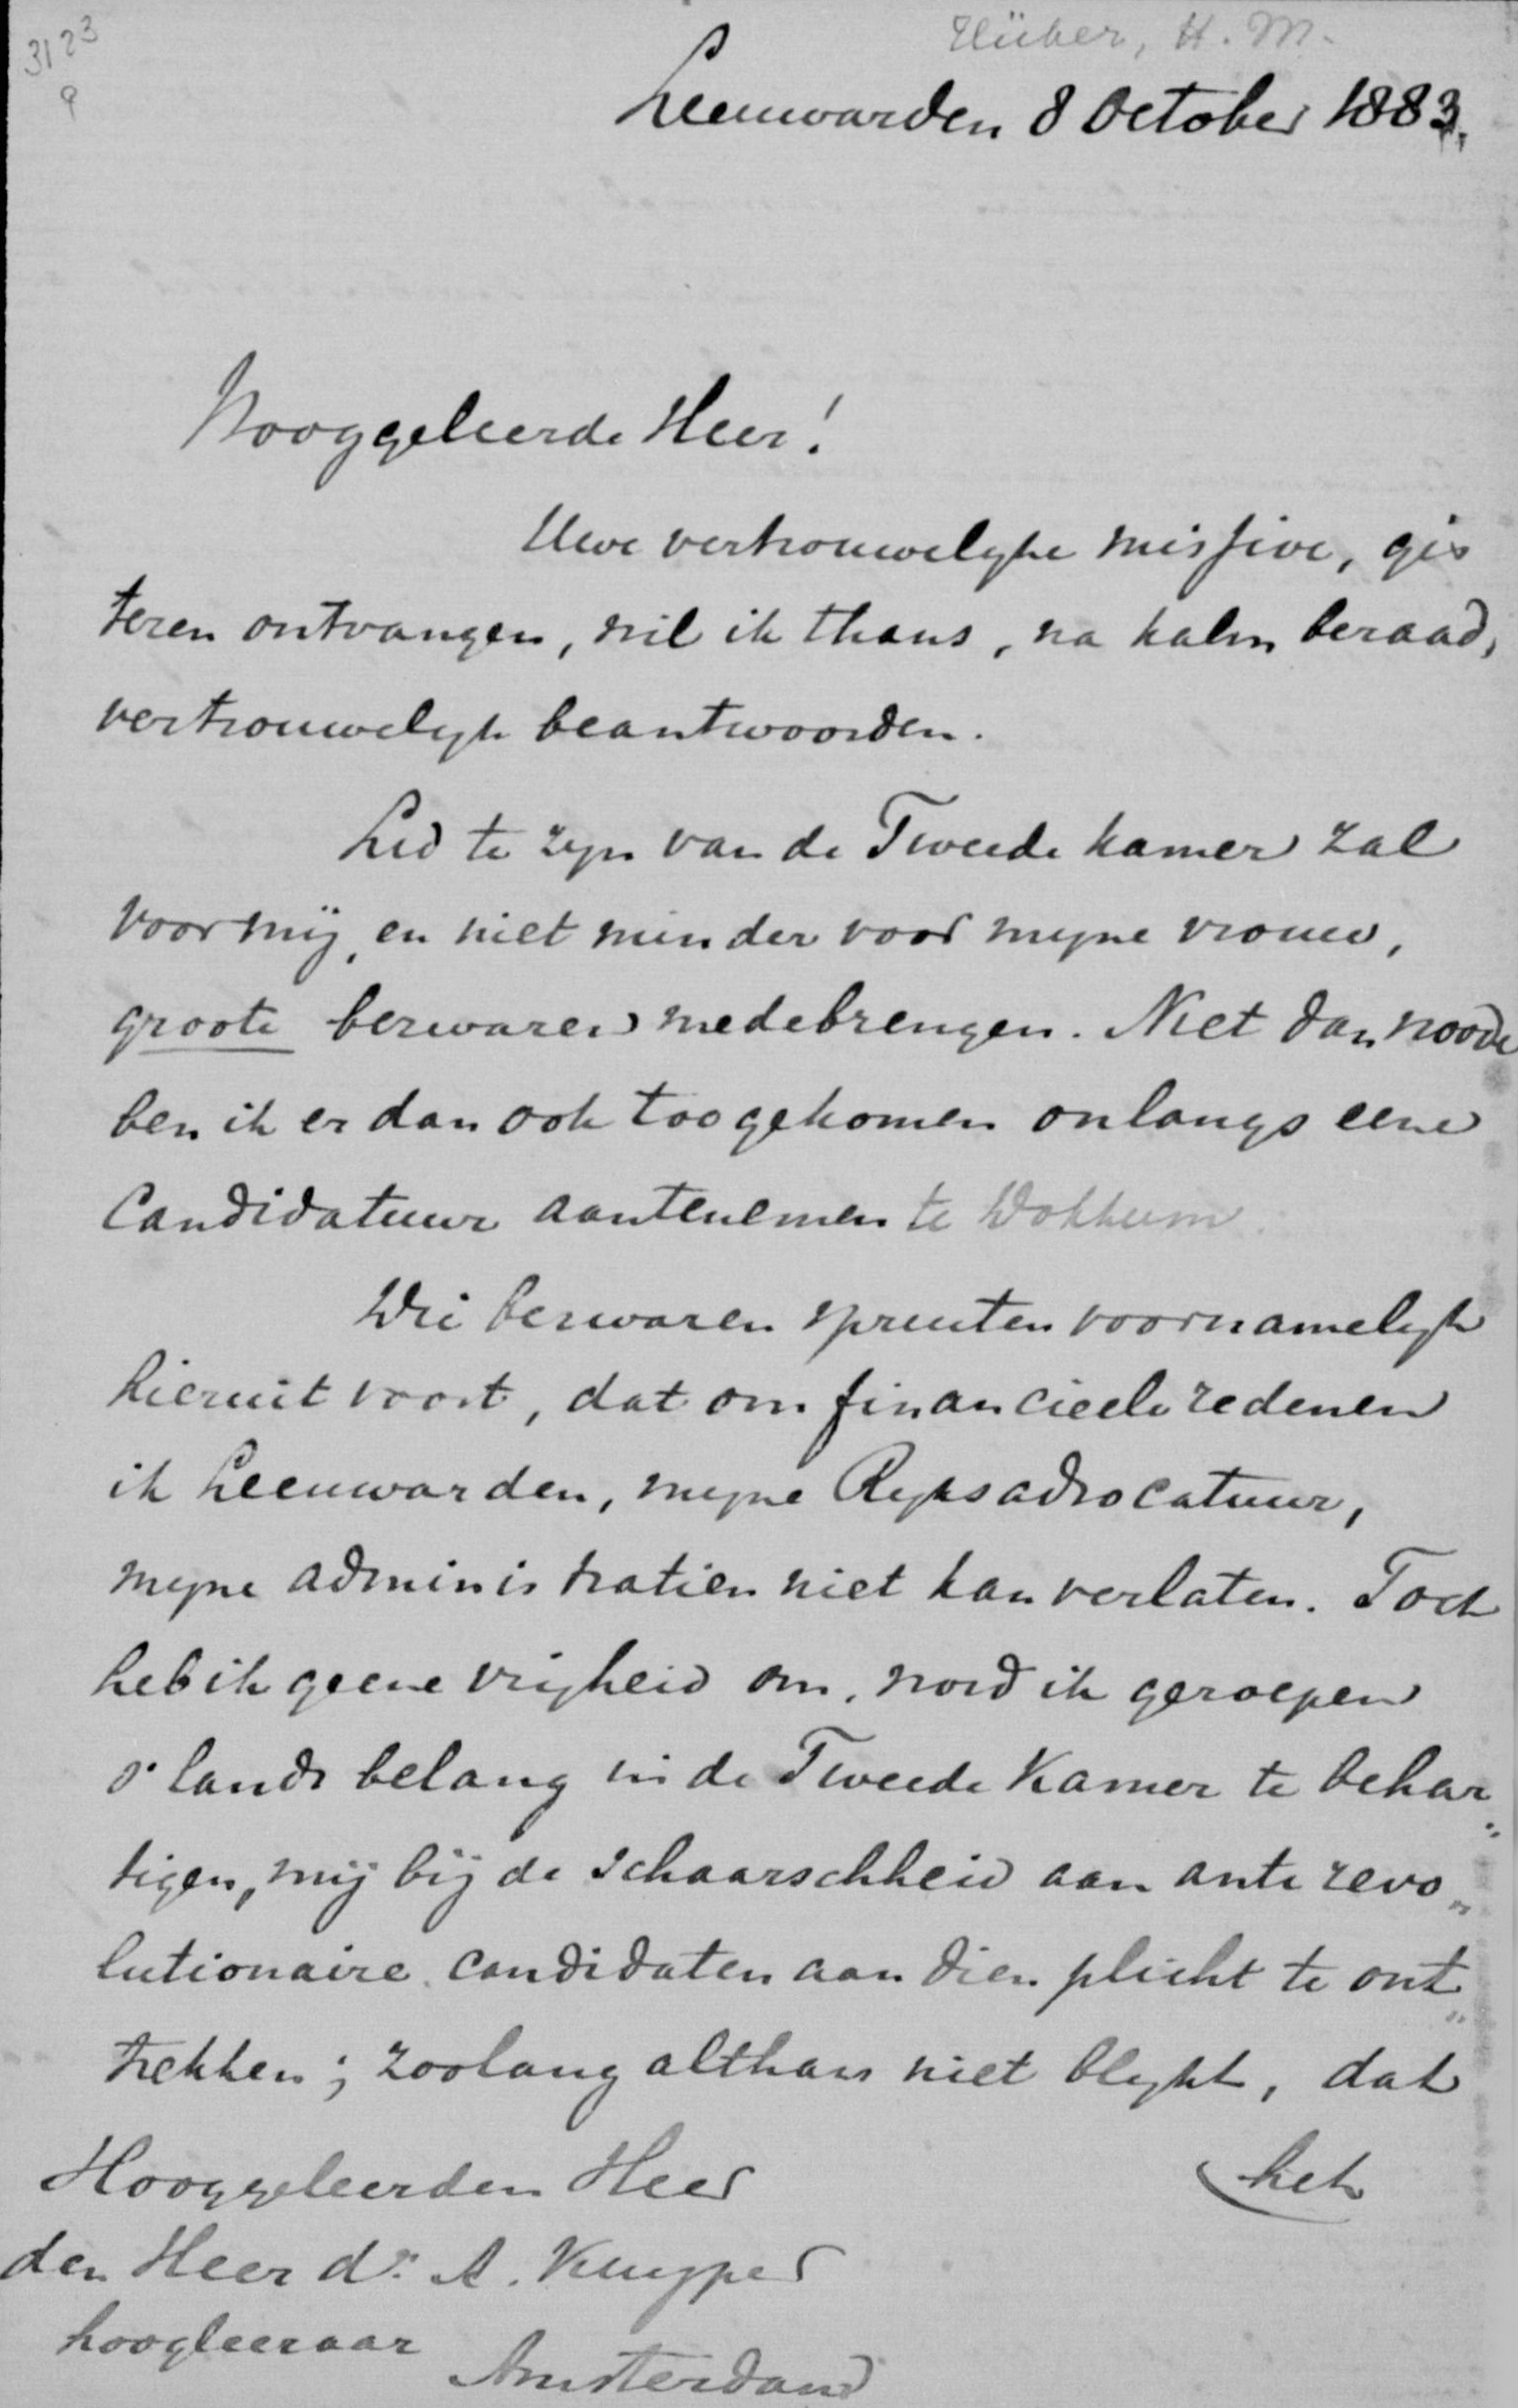 3123
9
Hüber, H. M.
Leeuwarden 8 October 1883.
Hooggeleerde Heer!
Uwe vertrouwelyke missive, gis
teren ontvangen, wil ik thans, na kalm beraad,
vertrouwelyk beantwoorden.
Lid te zyn van de Tweede kamer zal
voor mij, en niet minder voor myne vrouw,
groote bezwaren medebrengen. Niet dan noode
ben ik er dan ook toe gekomen onlangs eene
Candidatuur aantenemen te Dokkum.
Die bezwaren spruiten voornamelyk
hieruit voort, dat om financieele redenen
ik Leeuwarden, myne Ryksadvocatuur,
myne administratien niet kan verlaten. Toch
heb ik geene vrijheid om, word ik geroepen
s' lands belang in de Tweede Kamer te behar„
tigen, mij bij de schaarschheid aan anti revo„
lutionaire candidaten aan dien plicht te ont„
trekken; zoolang althans niet blykt, dat
het
Hooggeleerden Heer
den Heer dr. A. Kuyper
hoogleeraar
Amsterdam